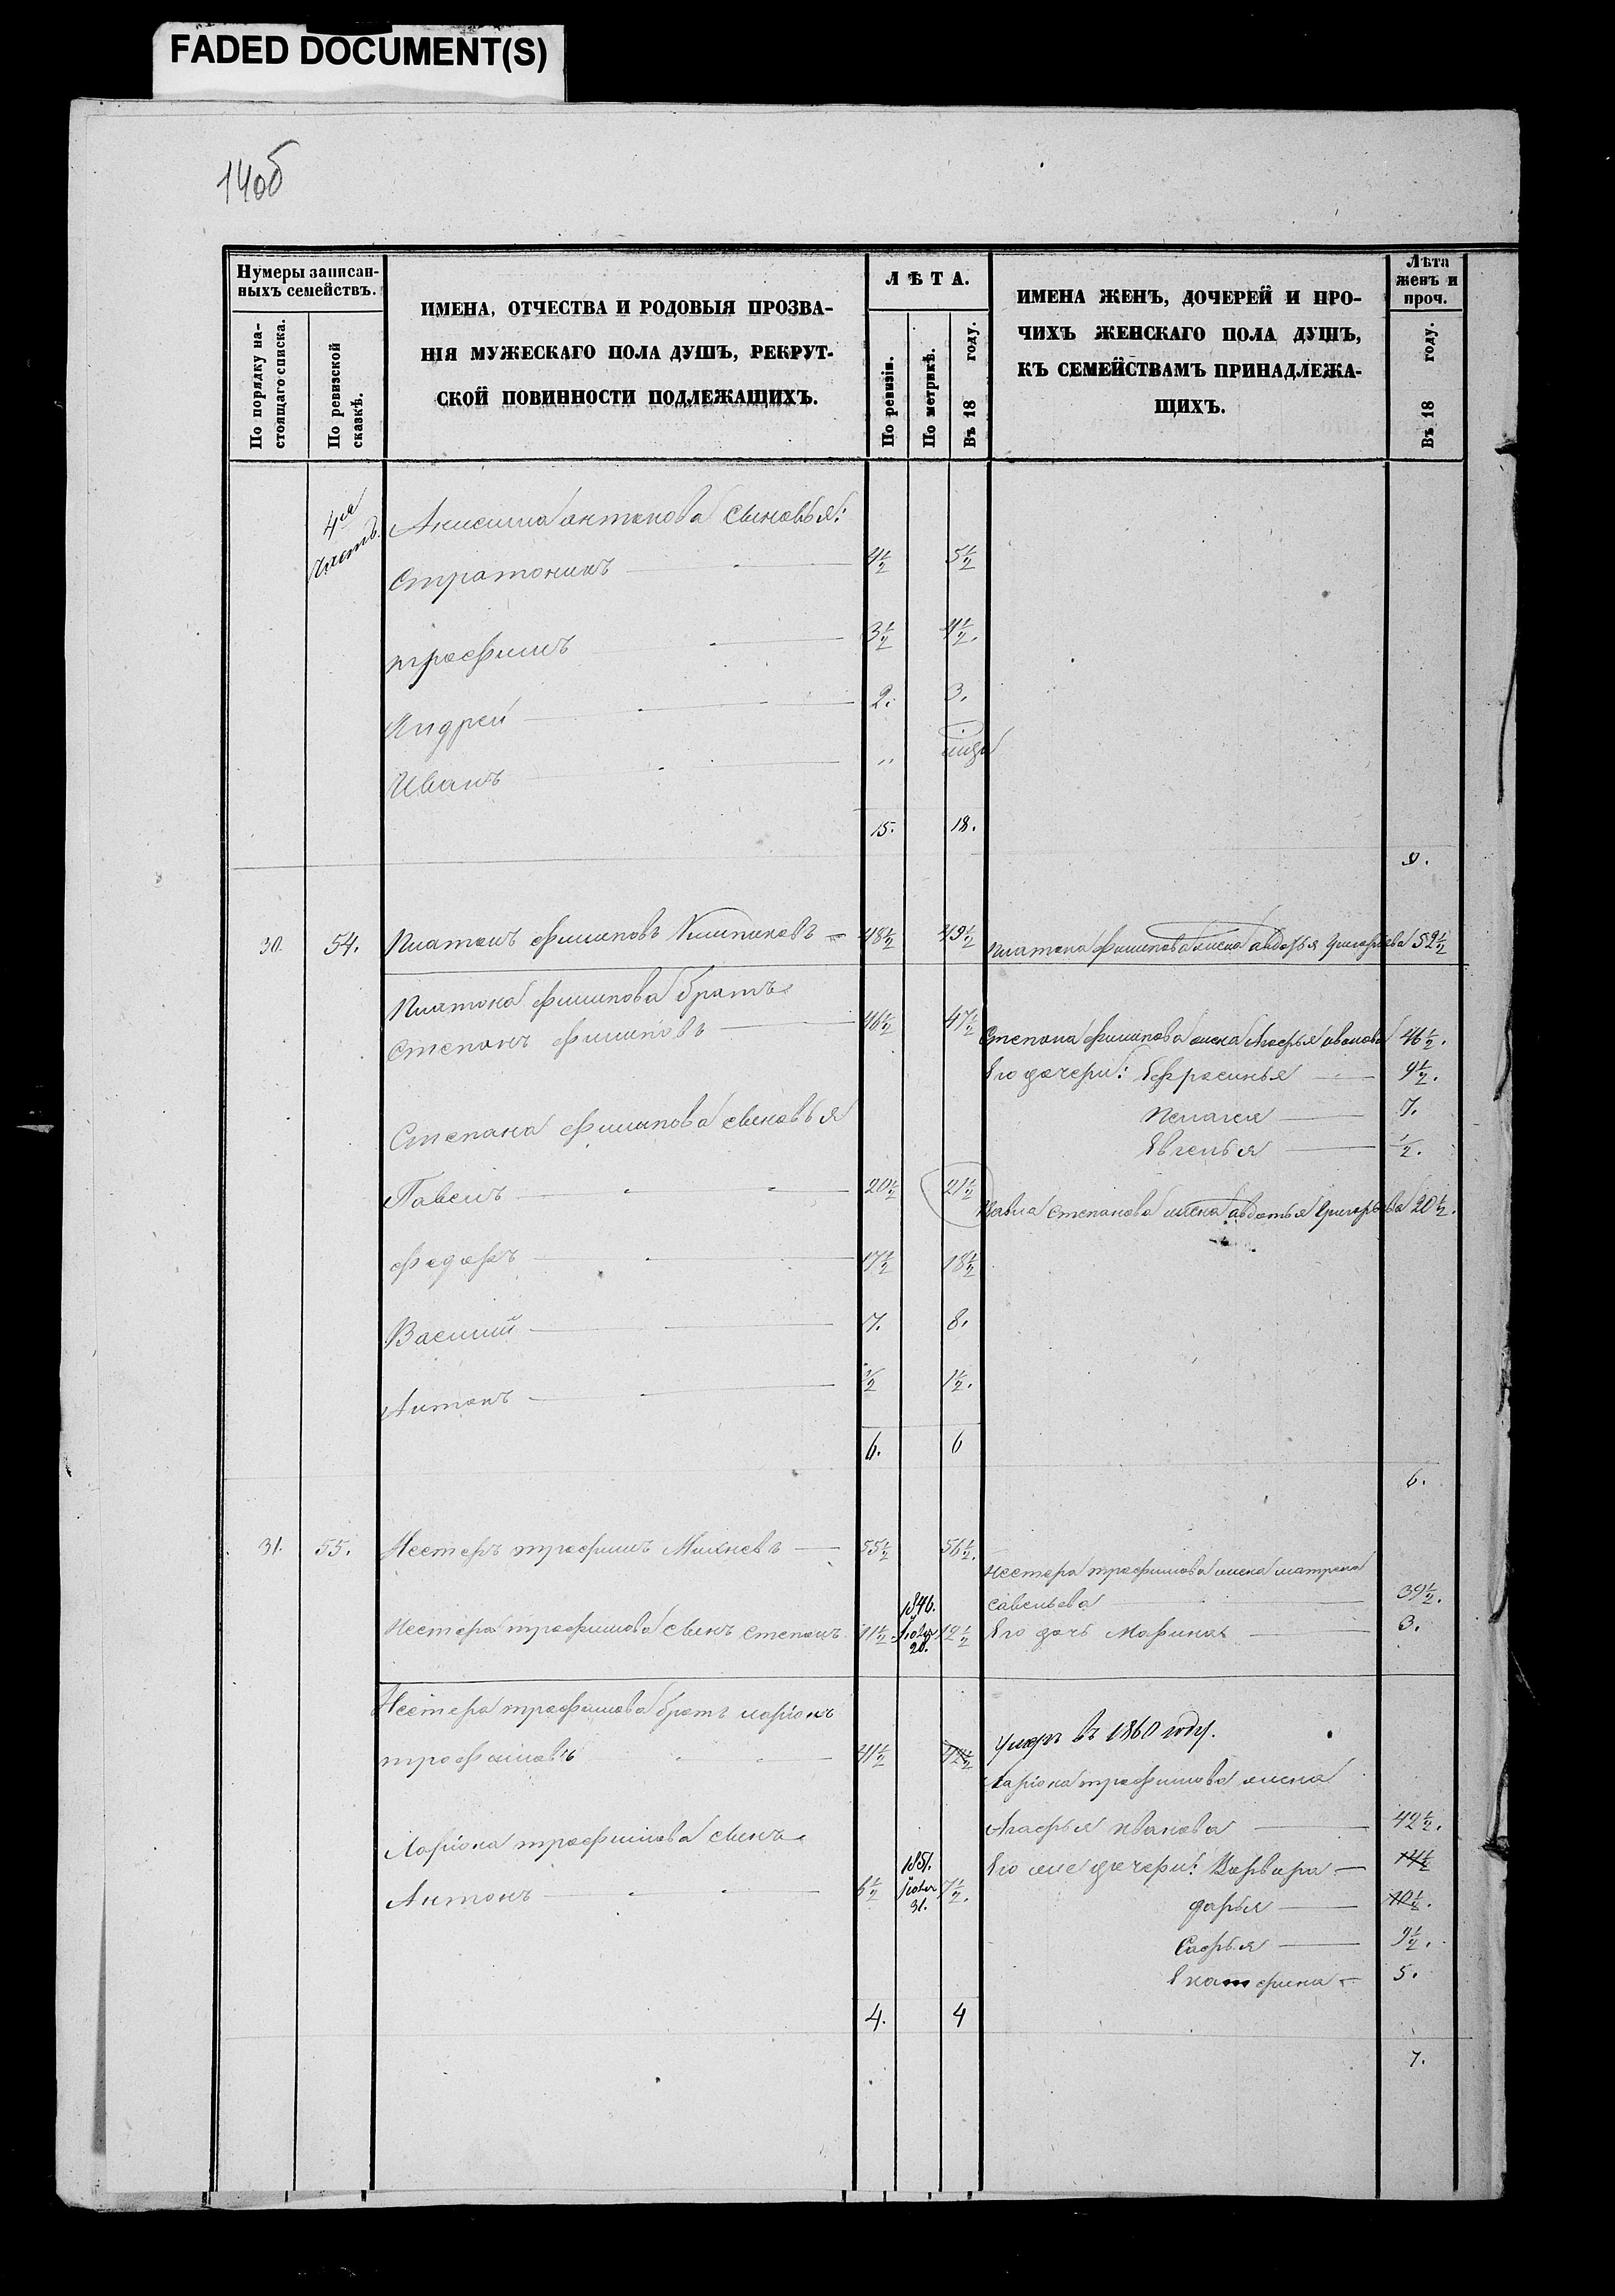 FADED DOCUMENT(S)
14об
Нумеры записан-
ныхъ семействъ.
По порядку на-
стоящаго списка.
По ревизской
сказкѣ.
ИМЕНА, ОТЧЕСТВА И РОДОВЫЯ ПРОЗВА-
НІЯ МУЖЕСКАГО ПОЛА ДУШЪ, РЕКРУТ-
СКОЙ ПОВИННОСТИ ПОДЛЕЖАЩИХЪ.
ЛѢТА.
По ревизіи.
По метрикѣ.
Въ 18 году.
ИМЕНА ЖЕНЪ, ДОЧЕРЕЙ И ПРО-
ЧИХЪ ЖЕНСКАГО ПОЛА ДУШЪ,
КЪ СЕМЕЙСТВАМЪ ПРИНАДЛЕЖА-
ЩИХЪ.
Лѣта
женъ и
проч.
Въ 18 году.
4ая
часть
Анисима антонова сыновья:
Стратоникъ 4½ 5½
трофимъ 3½ 4½.
Андрей 2. 3.
Иванъ "
15. 18.
9.
30. 54. Платонъ филиповъ 48½ 49½ Платона филипова жена авдотья Григорьева 52½
Платона филипова братъ
Степанъ филиповъ 46½ 47½ Степана филипова жена Агафья иванова 46½.
Его дочери: Ефросинья 9½.
Пелагея 7.
Степана филипова сыновья
Евгенья ½.
Павелъ 20½ 21½ Павла степанова жена авдотья Григорьева 20½.
федоръ 17½ 18½
Василий 7. 8.
Антонъ ½ 1½.
6. 6
6.
31. 55. Нестеръ трофимъ Михневъ 55½ 56½.
Нестера трофимова жена матрена
савельева 39½.
Нестера трофимова сынъ степанъ 11½. 1846. Іюля 20. 12½ Его дочь Марина 3.
Нестера трофимова братъ ларіонъ
трофимовъ 41½ 42½ умеръ въ 1860 году.
Ларіона трофимова жена
Агафья иванова 42½.
Ларіона трофимова сынъ
Его же дочери: Варвара 14½
Антонъ 6½ 1851. 31. 7½.
дарья 10½.
Софья 9½.
Екатерина 5.
4. 4
7.